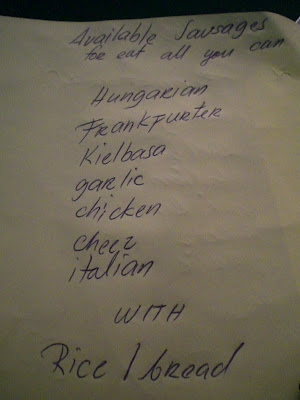 Available Sausages
for eat all you can
Hungarian
Frankfurter
Kielbasa
garlic
chicken
cheez
italian
WITH
Rice / bread